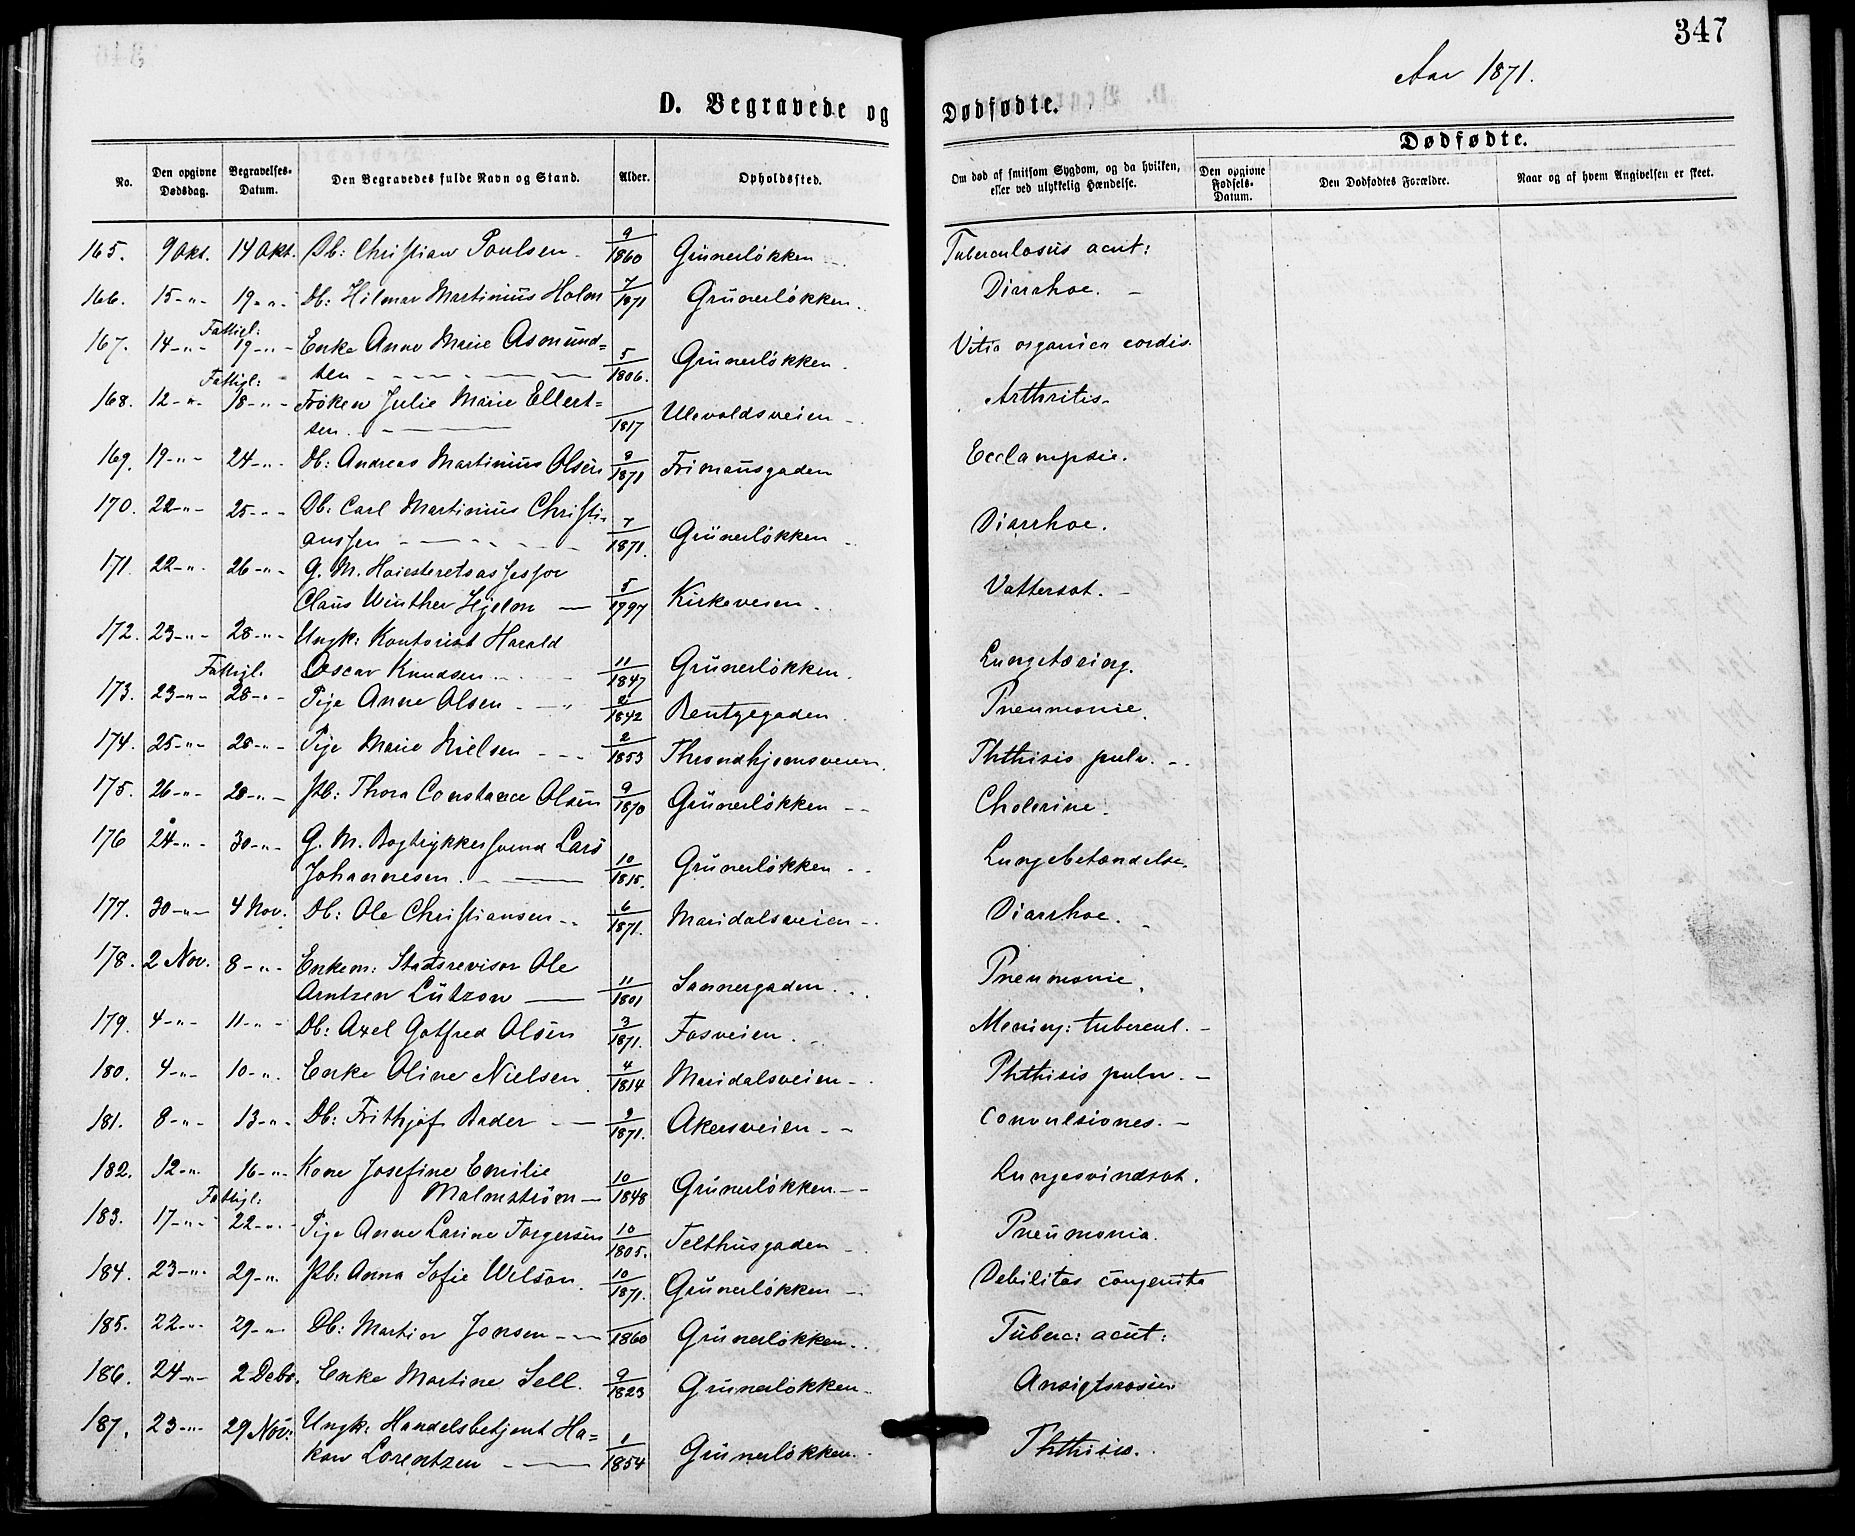 347
Aar 1871.
D. Begravede og Dødfødte.
Dødfødte.
No. Den opgivne Dødsdag. Begravelses-Datum. Den Begravedes fulde Navn og Stand. Alder. Opholdssted. Om død af smitsom Sygdom, og da hvilken, eller ved ulykkelig Hændelse. Den opgivne Fødsels-Datum. Den Dødfødtes Forældre. Naar og af hvem Angivelsen er skeet.
165. 9 Okt. 14 Okt. Db: Christian Poulsen 9/1860 Grünerløkken Tuberculosus acut:
166. 15-"- 19-"- Db: Hilmar Martinius Holm 7/1871 Grünerløkken. Diarrhoe.
Fattigl:
167. 14-"- 19-"- Enke Anne Marie Asmund=
sen 5/1806. Grünerløkken. Vitia organica cordis.
Fattigl:
168. 12-"- 18-"- Frøken Julie Marie Ellert=
sen. /1817 Ulevoldsveien Arthritis
169. 19-"- 24-"- Db: Andreas Martinius Olsen 9/1871 Frimansgaden Ecclampsie.
170. 22-"- 25-"- Db: Carl Martinius Christi-
anssen 7/1871. Grünerløkken Diarrhoe.
171. 22-"- 26-"- G. M. Høiesteretsassessor
Claus Winther Hjelm 5/1797 Kirkeveien. Vattersot.
172. 23-"- 28-"- Ungk: Kontorist Harald
Oscar Knudsen 11/1847 Grünerløkken. Lungetæring.
Fattigl.
173. 23-"- 28-"- Pige Anne Olsen 2/1842 Bentzegaden Pneumonie.
174. 25-"- 28-"- Pige Marie Nielsen 2/1853 Throndhjemsveien. Phthisis pulv.
175. 26-"- 28-"- Pb: Thora Constance Olsen 9/1870 Grünerløkken Cholerine.
176 24-"- 30-"- G. M. Bogtrykkersvend Lars
Johannesen. 10/1815. Grünerløkken Lungebetændelse.
177. 30-"- 4 Nov. Db: Ole Christiansen 6/1871. Maridalsveien Diarrhoe.
178. 2 Nov. 8-"- Enkem: Stadsrevisor Ole
Arntzen Lützow 11/1801 Sannergaden. Pneumonie.
179. 4-"- 11-"- Db: Axel Gotfred Olsen 3/1871. Fosveien. Mening: tubercul.
180. 4-"- 10-"- Enke Oline Nielsen 4/1814 Maridalsveien Phthisis pulv.
181. 8-"- 13-"- Db: Frithjof Bader 9/1871. Akersveien Convulsiones.
182. 12-"- 16-"- Kone Josefine Emilie
Malmstrøm 10/1848 Grünerløkken. Lungesvindsot.
Fattigl:
183. 17-"- 22-"- Pige Anne Larine Torgersen 10/1805. Telthusgaden Pneumonia.
184. 23-"- 29-"- Pb: Anna Sofie Wilson. 10/1871. Grünerløkken Debilitas congenita
185. 22-"- 29-"- Db: Martin Jonsen /1860 Grünerløkken. Tuberc: acut:
186. 24-"- 2 Debr. Enke Martine Sell. 9/1823 Grünerløkken Ansigtsrosen
187. 23-"- 29 Nov: Ungk: Handelsbetjent Ha=
kon Lorentzen 1/1854 Grünerløkken. Phthisis.